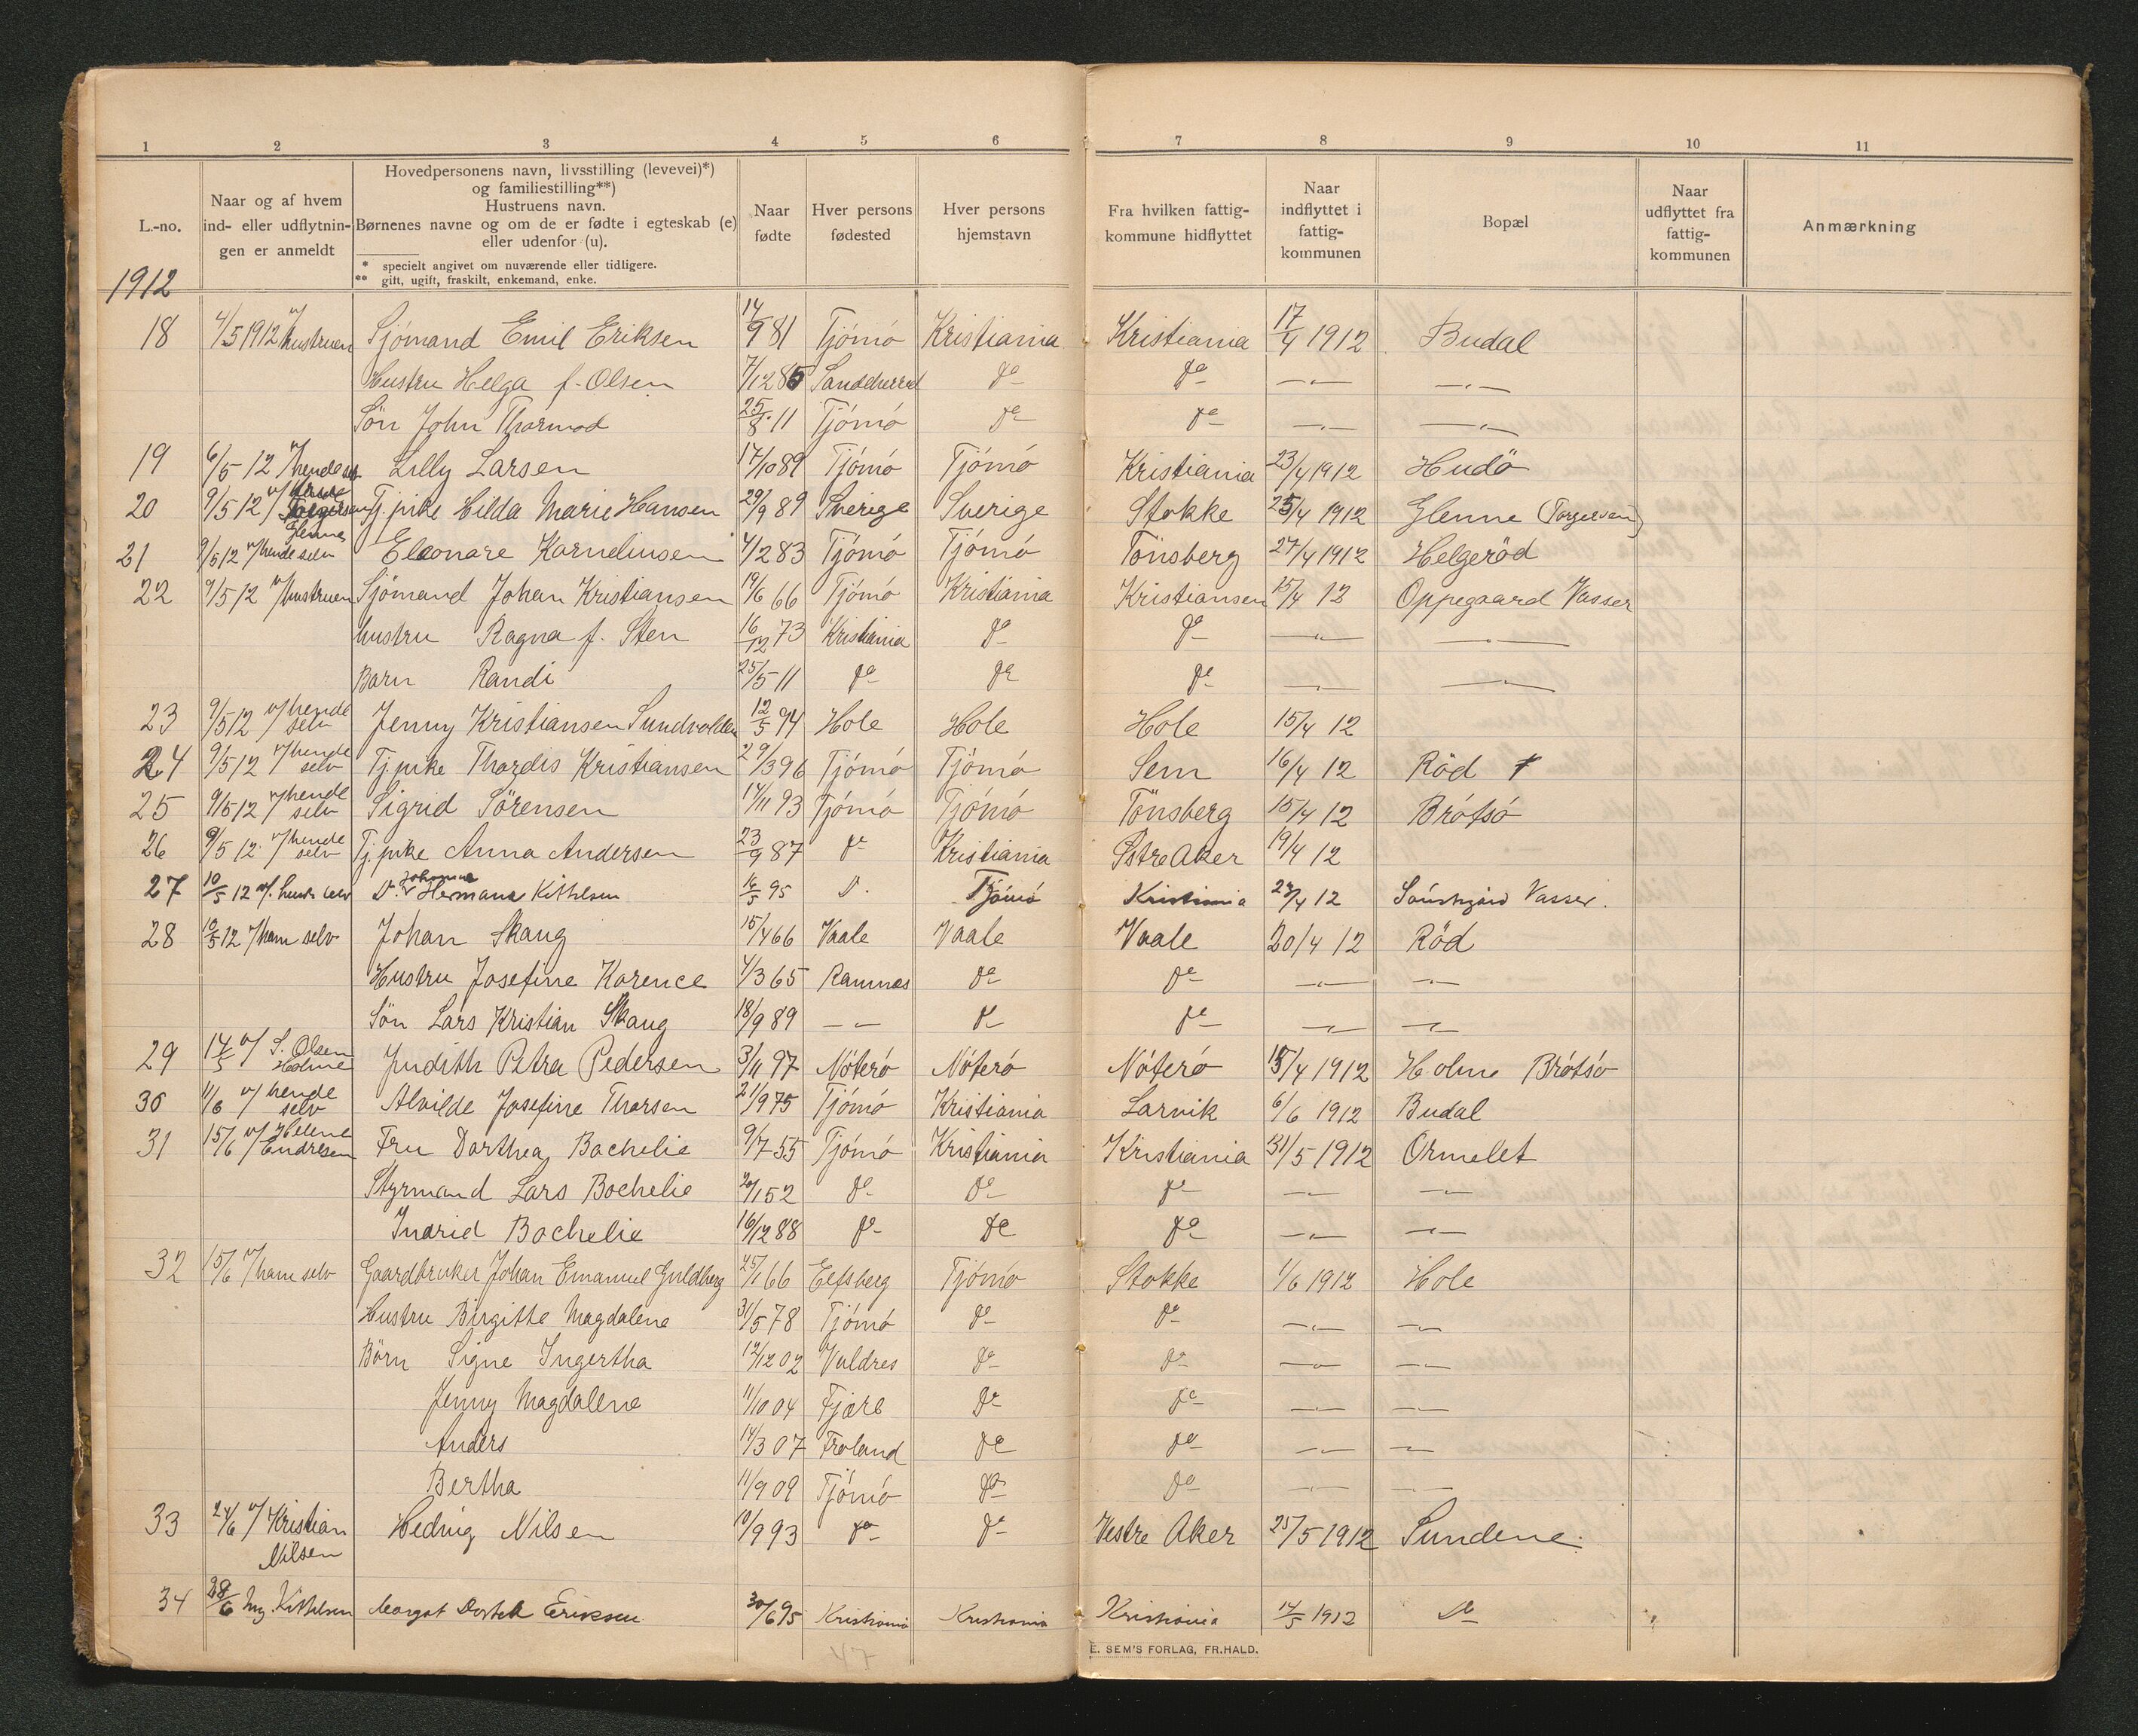 1 2 3 4 5 6 7 8 9 10 11
L.-no.
Naar og af hvem
ind- eller udflytnin-
gen er anmeldt
Hovedpersonens navn, livsstilling (levevei)*)
og familiestilling**)
Hustruens navn.
Børnenes navne og om de er fødte i egteskab (e)
eller udenfor (u).
* specielt angivet om nuværende eller tidligere.
** gift, ugift, fraskilt, enkemand, enke.
Naar
fødte
Hver persons
fødested
Hver persons
hjemstavn
Fra hvilken fattig-
kommune hidflyttet
Naar
indflyttet i
fattig-
kommunen
Bopæl
Naar
udflyttet fra
fattig-
kommunen
Anmærkning
1912
18 4/5 1912 v/hustruen Sjömand Emil Eriksen 14/9 81 Tjömö Kristiania Kristiania 17/4 1912 Budal
Hustru Helga f. Olsen 7/12 85 Sandeherred do do —„— —„—
Sön John Thormod 25/8 11 Tjömö do do —„— —„—
19 6/5 12 v/hende selv Lilly Larsen 17/10 89 Tjömö Tjömö Kristiania 23/4 1912 Hudö
20 9/5 12 v/ Glenne Tj.pike Hilda Marie Hansen 29/9 89 Sverige Sverige Stokke 25/4 1912 Glenne
21 9/5 12 v/hende selv Eleonare Kornelinsen 4/2 83 Tjömö Tjömö Tönsberg 27/4 1912 Helgeröd
22 9/5 12 v/hustruen Sjömand Johan Kristiansen 19/6 66 Tjömö Kristiania Kristiansen 15/4 12 Oppegaard Vasser
hustru Ragna f. Sten 16/12 73 Kristiania do do —„— —„—
Barn Randi 25/5 11 do do do —„— —„—
23 9/5 12 v/hende selv Jenny Kristiansen Sundvolden 12/5 94 Hole Hole Hole 15/4 12
24 9/5 12 v/hende selv Tj.pike Thordis Kristiansen 29/3 96 Tjömö Tjömö Sem 16/4 12 Röd
25 9/5 12 v/hende selv Sigrid Sörensen 14/11 93 Tjömö Tjömö Tönsberg 15/4 12 Brötsö
26 9/5 12 v/hende selv Tj.pike Anna Andersen 23/9 87 do Kristiania Östre Aker 19/4 12
27 10/5 12 v/. hende selv Do. Johanne Hermana Kithilsen 16/5 95 D. Tjömö Kristiania 27/4 12 Vasser.
28 10/5 12 v/ham selv Johan Skaug 15/4 66 Vaale Vaale Vaale 20/4 12 Röd
Hustru Josefine Korence 4/3 65 Ramnes do do —„— —„—
Sön Lars Kristian Skaug 18/9 89 —„— do do —„— —„—
29 14/5 v/ S. Olsen Holme Judith Petra Pedersen 3/11 97 Nöterö Nöterö Nöterö 15/4 1912 Holme Brötsö
30 11/6 v/ hende selv Alvilde Josefine Thorsen 21/9 75 Tjömö Kristiania Larvik 6/6 1912 Budal
31 15/6 v/ Helene Endresen Fru Dorthea Bachelie 9/7 55 Tjömö Kristiania Kristiania 31/5 1912 Ormelet
Styrmand Lars Bochelie 20/1 52 do do do —„— —„—
Indrid Bochelie 16/12 88 do do do —„— —„—
32 15/6 v/ham selv Gaardbruker Johan Emanuel Guldberg 25/1 66 Eefsberg Tjömö Stokke 1/6 1912 Hole
Hustru Birgitte Magdalene 31/5 78 Tjömö do do —„— —„—
Börn Signe Ingertha 12/12 02 Valdres do do —„— —„—
Jenny Magdalene 11/10 04 Fjære do do —„— —„—
Anders 14/3 07 Froland do do —„— —„—
Bertha 11/9 09 Tjömö do do —„— —„—
33 24/6 v/ Kristian Nilsen Hedvig Nilsen 10/9 93 do do Vestre Aker 25/5 1912 Sundene.
34 28/6 Ing. Kithilsen Margot Eriksen 30/6 95 Kristiania Kristiania Kristiania 14/5 1912 Do
47
E. SEM'S FORLAG, FR.HALD.